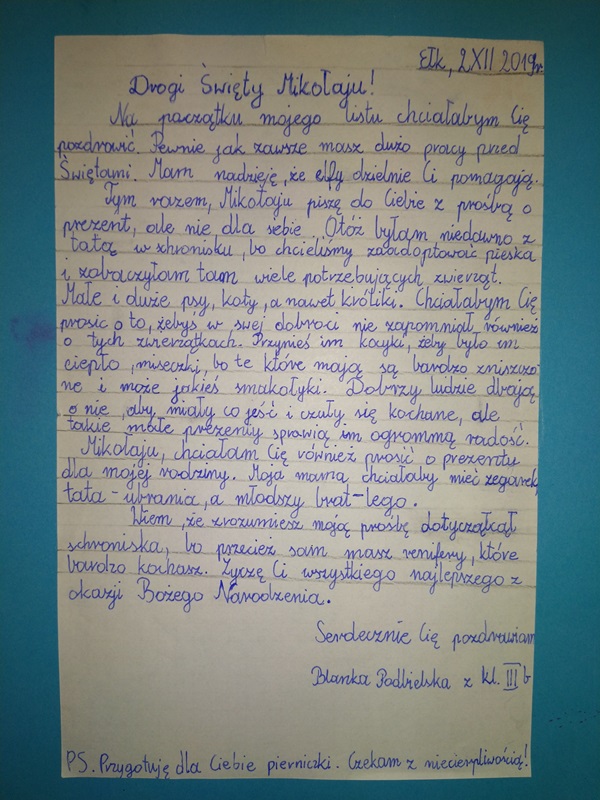 Ełk, 2 XII 2019r.
Drogi Święty Mikołaju!
Na początku mojego listu chciałabym Cię
pozdrowić. Pewnie jak zawsze masz dużo pracy przed
Świętami. Mam nadzieję, że elfy dzielnie Ci pomagają.
Tym razem, Mikołaju piszę do Ciebie z prośbą o
prezent, ale nie dla siebie. Otóż byłam niedawno z
tatą w schronisku, bo chcieliśmy zaadoptować pieska
i zobaczyłam tam wiele potrzebujących zwierząt.
Małe i duże psy, koty, a nawet króliki. Chciałabym Cię
prosić o to, żebyś w swej dobroci nie zapomniał również
o tych zwierzątkach. Przynieś im kocyki, żeby było im
ciepło, miseczki, bo te które mają są bardzo zniszczo-
ne i może jakieś smakołyki. Dobrzy ludzie dbają
o nie, aby miały co jeść i czuły się kochane, ale
takie małe prezenty sprawią im ogromną radość.
Mikołaju, chciałam Cię również prosić o prezenty
dla mojej rodziny. Moja mama chciałaby mieć zegarek,
tata - ubrania, a młodszy brat - lego.
Wiem, że zrozumiesz moją prośbę dotyczącą
schroniska, bo przecież sam masz renifery, które
bardzo kochasz. Życzę Ci wszystkiego najlepszego z
okazji Bożego Narodzenia.
Serdecznie Cię pozdrawiam
z kl. III b
PS. Przygotuję dla Ciebie pierniczki. Czekam z niecierpliwością!